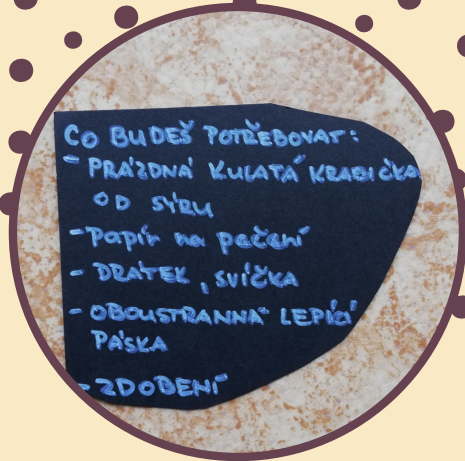 CO BUDEŠ POTŘEBOVAT:
- PRÁZDNÁ KULATÁ KRABIČKA
OD SÝRU
- Papír na pečení
- DRÁTEK, SVÍČKA
- OBOUSTRANNÁ LEPÍCÍ
PÁSKA
- ZDOBENÍ